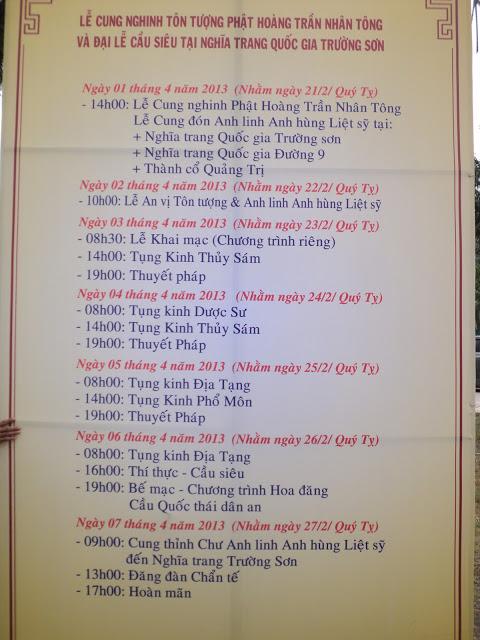 LỄ CUNG NGHINH TÔN TƯỢNG PHẬT HOÀNG TRẦN NHÂN TÔNG
VÀ ĐẠI LỄ CẦU SIÊU TẠI NGHĨA TRANG QUỐC GIA TRƯỜNG SƠN
Ngày 01 tháng 4 năm 2013 (Nhằm ngày 21/2/ Quý Tỵ)
- 14h00: Lễ Cung nghinh Phật Hoàng Trần Nhân Tông
Lễ Cung đón Anh linh Anh hùng Liệt sỹ tại:
+ Nghĩa trang Quốc gia Trường sơn
+ Nghĩa trang Quốc gia Đường 9
+ Thành cổ Quảng Trị
Ngày 02 tháng 4 năm 2013 (Nhằm ngày 22/2/ Quý Tỵ)
- 10h00: Lễ An vị Tôn tượng & Anh linh Anh hùng Liệt sỹ
Ngày 03 tháng 4 năm 2013 (Nhằm ngày 23/2/ Quý Tỵ)
- 08h30: Lễ Khai mạc (Chương trình riêng)
- 14h00: Tụng Kinh Thủy Sám
- 19h00: Thuyết pháp
Ngày 04 tháng 4 năm 2013 (Nhằm ngày 24/2/ Quý Tỵ)
- 08h00: Tụng kinh Dược Sư
- 14h00: Tụng Kinh Thủy Sám
- 19h00: Thuyết Pháp
Ngày 05 tháng 4 năm 2013 (Nhằm ngày 25/2/ Quý Tỵ)
- 08h00: Tụng kinh Địa Tạng
- 14h00: Tụng Kinh Phổ Môn
- 19h00: Thuyết Pháp
Ngày 06 tháng 4 năm 2013 (Nhằm ngày 26/2/ Quý Tỵ)
- 08h00: Tụng kinh Địa Tạng
- 16h00: Thí thực - Cầu siêu
- 19h00: Bế mạc - Chương trình Hoa đăng
Cầu Quốc thái dân an
Ngày 07 tháng 4 năm 2013 (Nhằm ngày 27/2/ Quý Tỵ)
- 09h00: Cung thỉnh Chư Anh linh Anh hùng Liệt sỹ
đến Nghĩa trang Trường Sơn
- 13h00: Đăng đàn Chẩn tế
- 17h00: Hoàn mãn